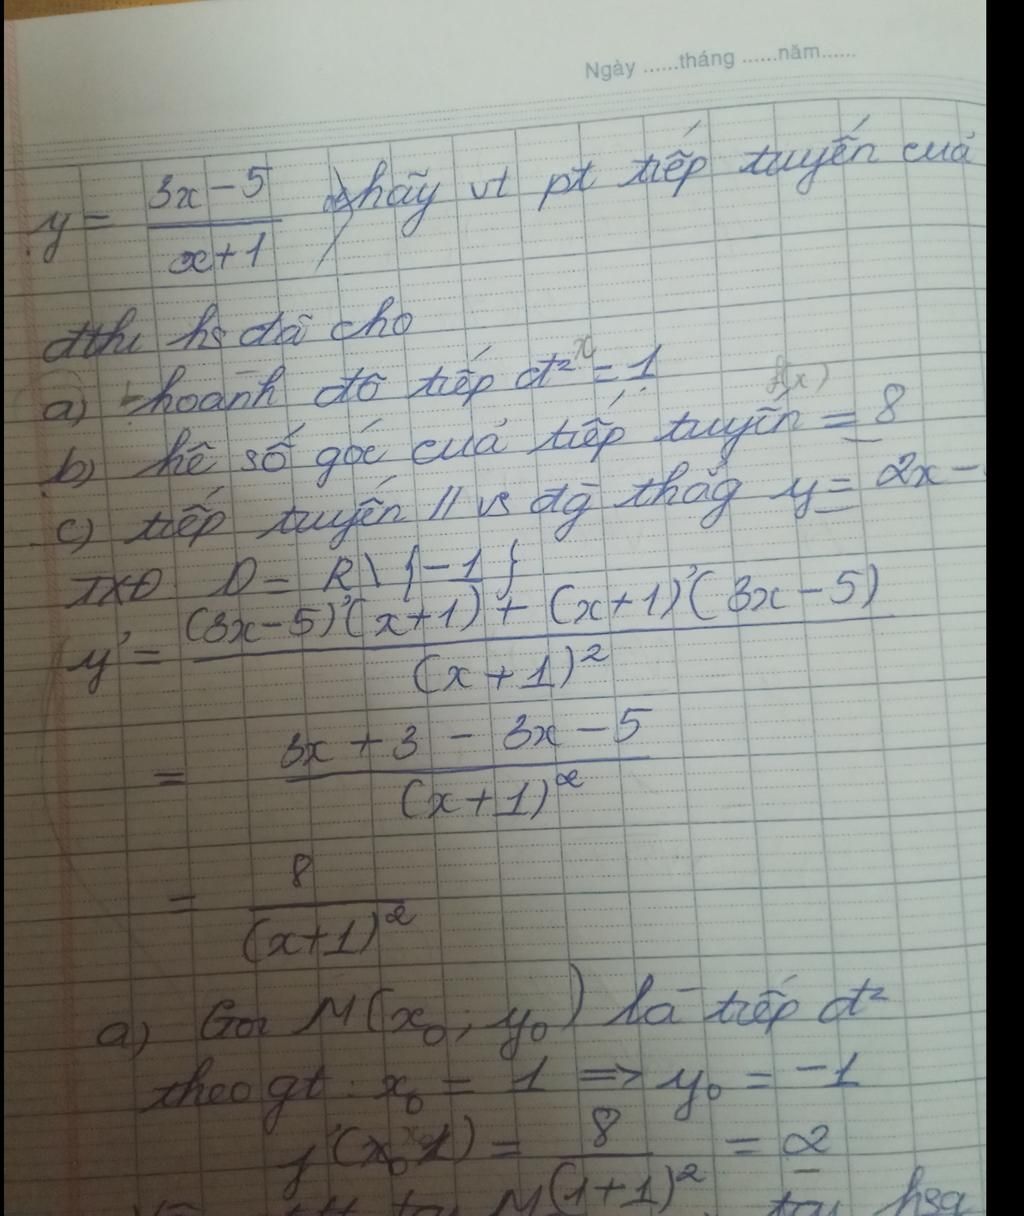 Ngày ......tháng ......năm......
y = \frac{3x-5}{x+1} hãy vt pt tiếp tuyến của
đthi hs đã cho
a) hoành độ tiếp đ² x = 1
b) hệ số góc của tiếp tuyến = 8
c) tiếp tuyến // vs đg thẳg y = 2x -
TXĐ D = R \ {-1}
y' = \frac{(3x-5)'(x+1) + (x+1)'(3x-5)}{(x+1)^2}
= \frac{3x+3-3x-5}{(x+1)^2}
= \frac{8}{(x+1)^2}
a) Gọi M(x_0; y_0) là tiếp đ²
theo gt: x_0 = 1 => y_0 = -1
= \frac{8}{(1+1)^2} = 2